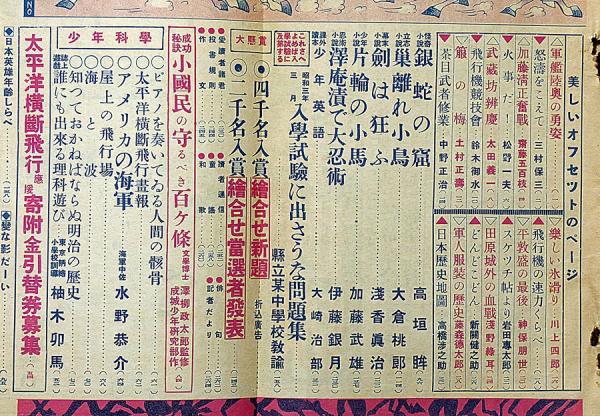 美しいオフセツトのページ
◇軍艦陸奥の勇姿
◇怒濤をこえて 三村保三
◇加藤清正奮戦 齋藤五百枝
◇火事だ! 松野一夫
◇武蔵坊辨慶 太田義一
◇飛行機競技會 鈴木御水
◇箙の梅 土村正壽
◇茶目武者修業 中野正治
◇樂しい氷滑り 川上四郎
◇飛行機の速力くらべ
◇平敦盛の最後 神保朋世
◇スケツチ帖より 岩田專太郎
◇田原城外の血戰
◇どんどこどん 新關健之助
◇軍人服装の歴史
◇日本歴史地圖 高橋渉之助
銀蛇の窟 高垣眸
巣離れ小鳥 大倉桃郎
劍は狂ふ 淺香眞治
片輪の小馬 加藤武雄
澤庵漬で大忍術 伊藤銀月
少年英語 大崎治部
昭和三年三月 入學試驗に出さうな問題集 縣立某中學校教諭
大懸賞
四千名入賞 繪合せ新題 折込廣告
二千名入賞 繪合せ當選者發表
愛讀者諸君
投書規則
作文
讀者通信
童謠
和歌
俳句
記者だより
成功秘訣 小國民の守るべき百ケ條 文學博士 澤柳政太郎監修 成城少年研究部作
少年科學
ピアノを奏いてゐる人間の骸骨
太平洋横斷飛行畫報
アメリカの海軍 海軍中佐 水野恭介
屋上の飛行場
海と波
知つておかねばならぬ明治の歴史
誰にも出來る理科遊び 柚木卯馬
太平洋横斷飛行應援 寄附金引替券募集
日本英雄年齡しらべ
變な影だーい